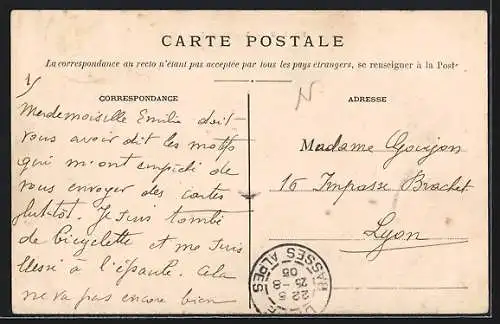 CARTE POSTALE
La correspondance au recto n'étant pas acceptée par tous les pays étrangers, se renseigner à la Poste
CORRESPONDANCE
Merdemoiselle Emilie doit
vous avoir dit les motifs
qui m'ont empêché de
vous envoyer des cartes
plutôt. Je suis tombé
de bicyclette et me suis
blessé à l'épaule. Cela
ne va pas encore bien
ADRESSE
Madame Goujon
16 Impasse Brachet
Lyon
BASSES ALPES
22 5
25 -8
05